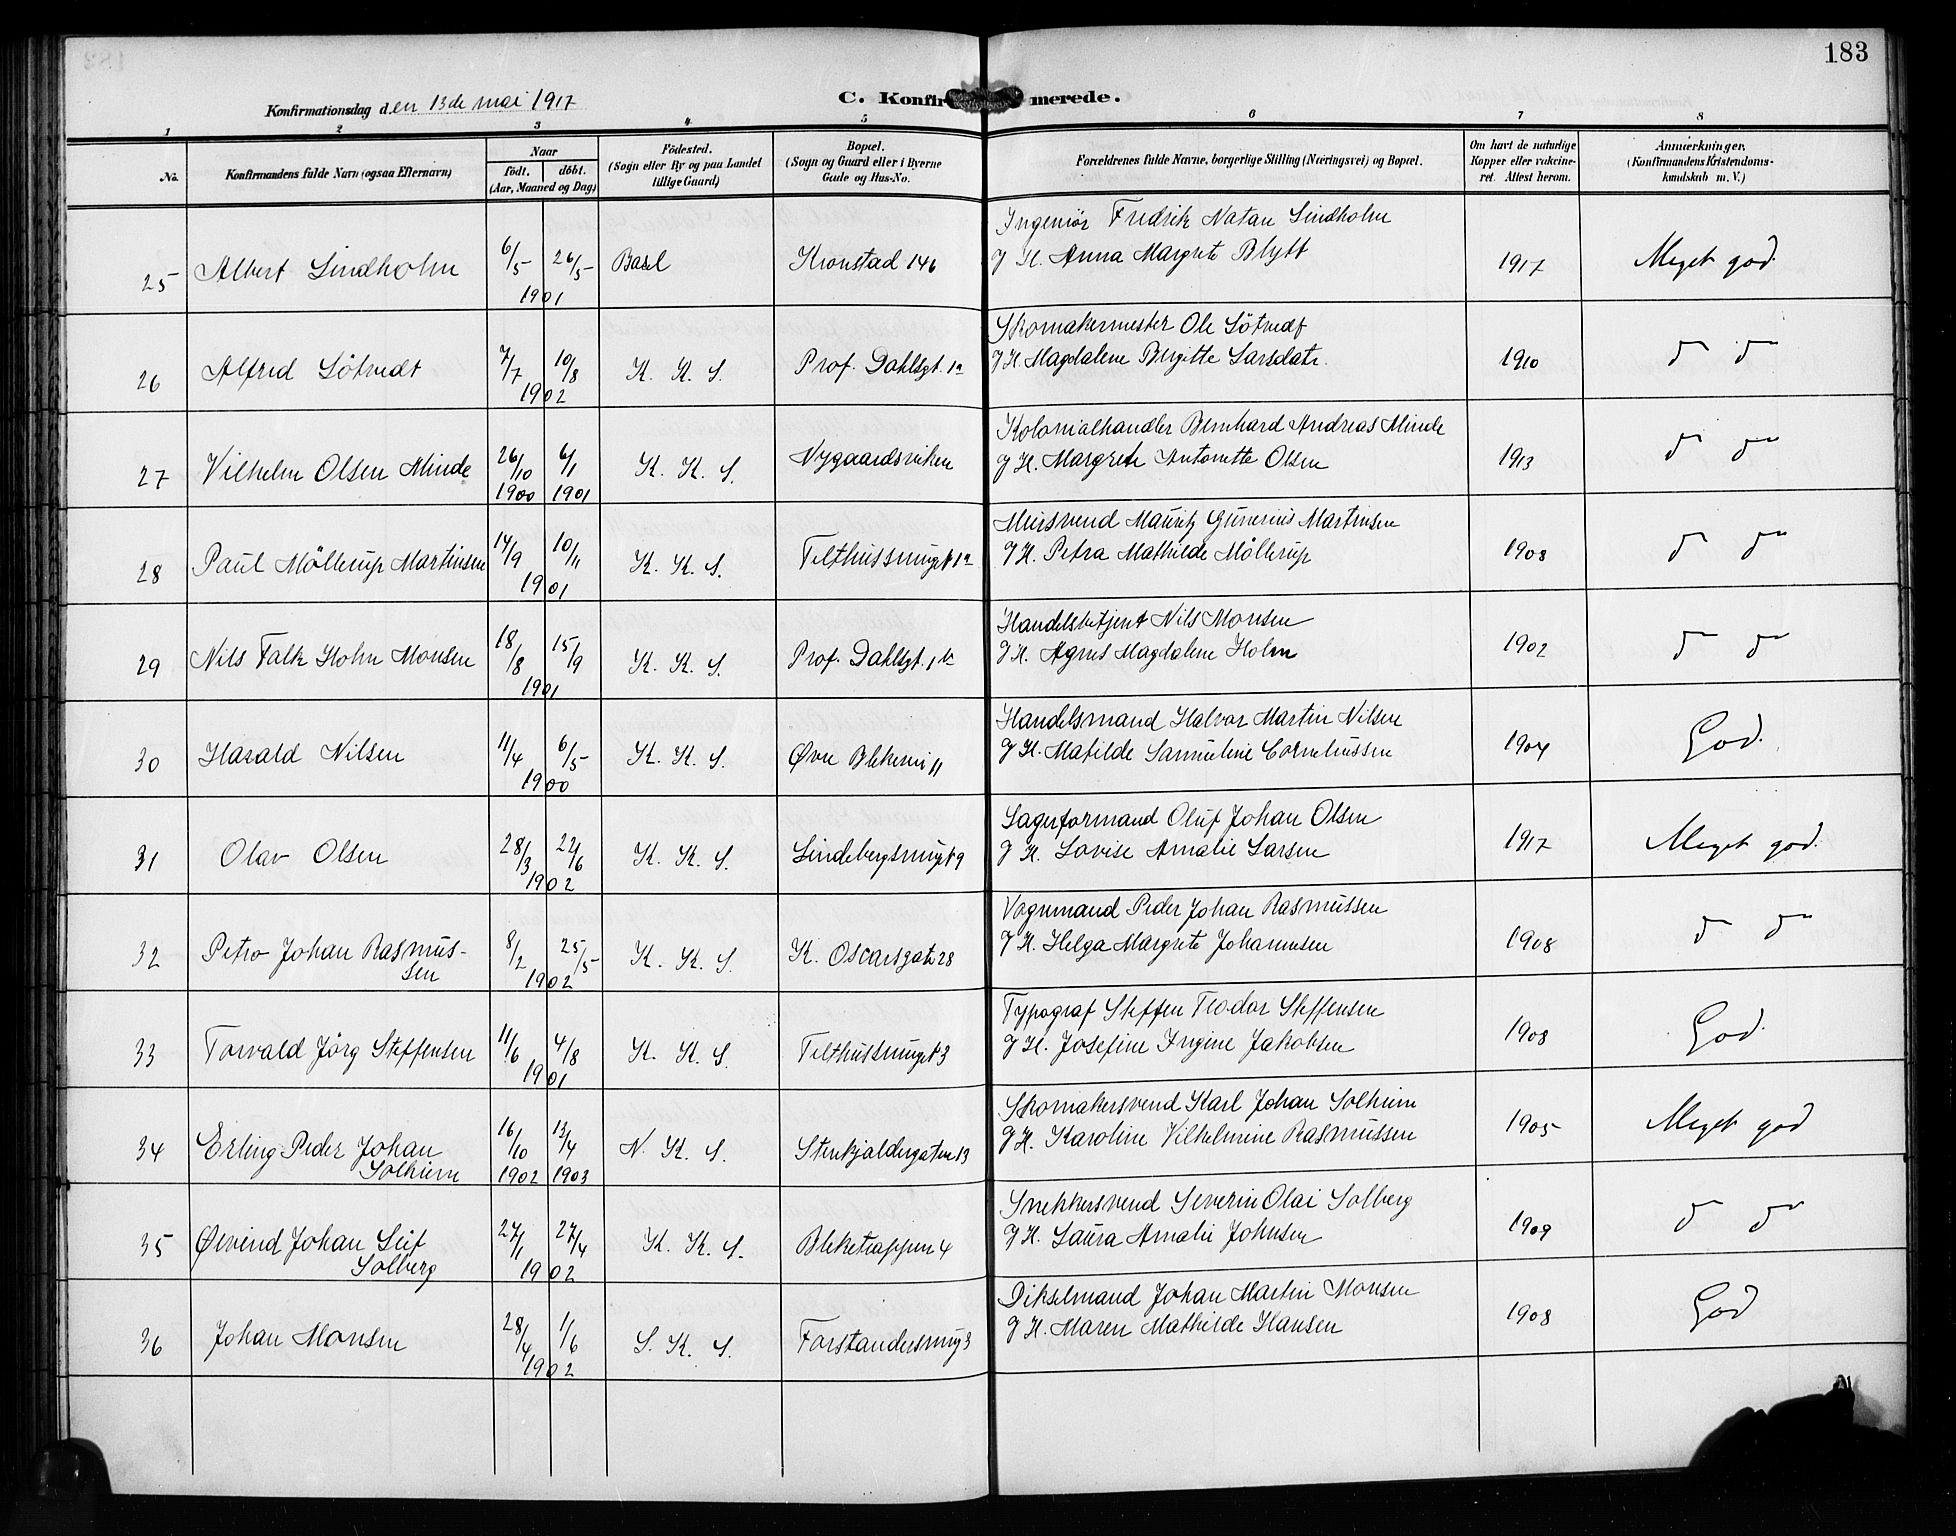 183
Konfirmationsdag den 13de mai 1917
C. Konfirmerede.
1 2 3 4 5 6 7 8
No. Konfirmandens fulde Navn (ogsaa Efternavn) Naar født. døbt. (Aar, Maaned og Dag) Fødested. (Sogn eller By og paa Landet tillige Gaard) Bopæl. (Sogn og Gaard eller i Byerne Gade og Hus-No. Forældrenes fulde Navne, borgerlige Stilling (Næringsvei) og Bopæl. Om havt de naturlige Kopper eller vakcineret. Attest herom. Anmærkninger. (Konfirmandens Kristendomskundskab m. V.)
Ingeniør Fredrik Natan Lindholm
25 Albert Lindholm 6/5 26/5 1901 Basel Kronstad 146 G H. Anna Margrete Blytt 1917 Meget god.
Skomakermester Ole Søtvedt
26 Alfred Søtvedt 7/7 10/8 1902 K. K. S. Prof. Dahlsgt. 1a G H. Magdalene Birgitte Larsdatr. 1910 d d
Kolonialhandler Bernhard Andreas Minde
27 Vilhelm Olsen Minde 26/10 1900 6/1 1901 K. K. S. Nygaardsviken G H. Margrete Antonette Olsen 1913 d d
Mursvend Mauritz Gunerius Martinsen
28 Paul Møllerup Martinsen 14/9 10/11 1901 K. K. S. Telthussmuget 1a G H. Petra Mathilde Møllerup 1908 d d
Handelsbetjent Nils Monsen
29 Nils Falk Holm Monsen 18/8 15/9 1901 K. K. S. Prof. Dahlsgt. 1b G H. Agnes Magdalene Holm 1902 d d
Handelsmand Halvor Martin Nilsen
30 Harald Nilsen 11/4 6/5 1900 K. K. S. Øvre Blekevei 11 G H. Matilde Samueline Corneliussen 1904 God.
Lagerformand Oluf Johan Olsen
31 Olav Olsen 28/3 22/6 1902 K. K. S. Lindebergsmuget 9 G H. Lovise Amalie Larsen 1917 Meget god.
Vognmand Peder Johan Rasmussen
32 Petro Johan Rasmus-
sen 8/2 25/5 1902 K. K. S. K. Oscarsgate 28 G H. Helga Margrete Johannesen 1908 d d
Typograf Steffen Teodor Steffensen
33 Torvald Jørg Steffensen 11/6 4/8 1901 K. K. S. Telthussmuget 3 G H. Josefine Ingine Jakobsen 1908 God.
Skomakersvend Karl Johan Solheim
34 Erling Peder Johan
Solheim 16/10 1902 13/4 1903 N. K. S. Stenkjeldergaten 13 G H. Karoline Vilhelmine Rasmussen 1905 Meget god
Snekkersvend Severin Olai Solberg
35 Øivind Johan Leif
Solberg 27/1 27/4 1902 K. K. S. Bleketrappen 4 G H. Laura Amalie Johnsen 1909 d d
Dikselmand Johan Martin Monsen
36 Johan Monsen 28/4 1/6 1902 S. K. S. Forstandersmug 3 G H. Maren Mathilde Hansen 1908 God